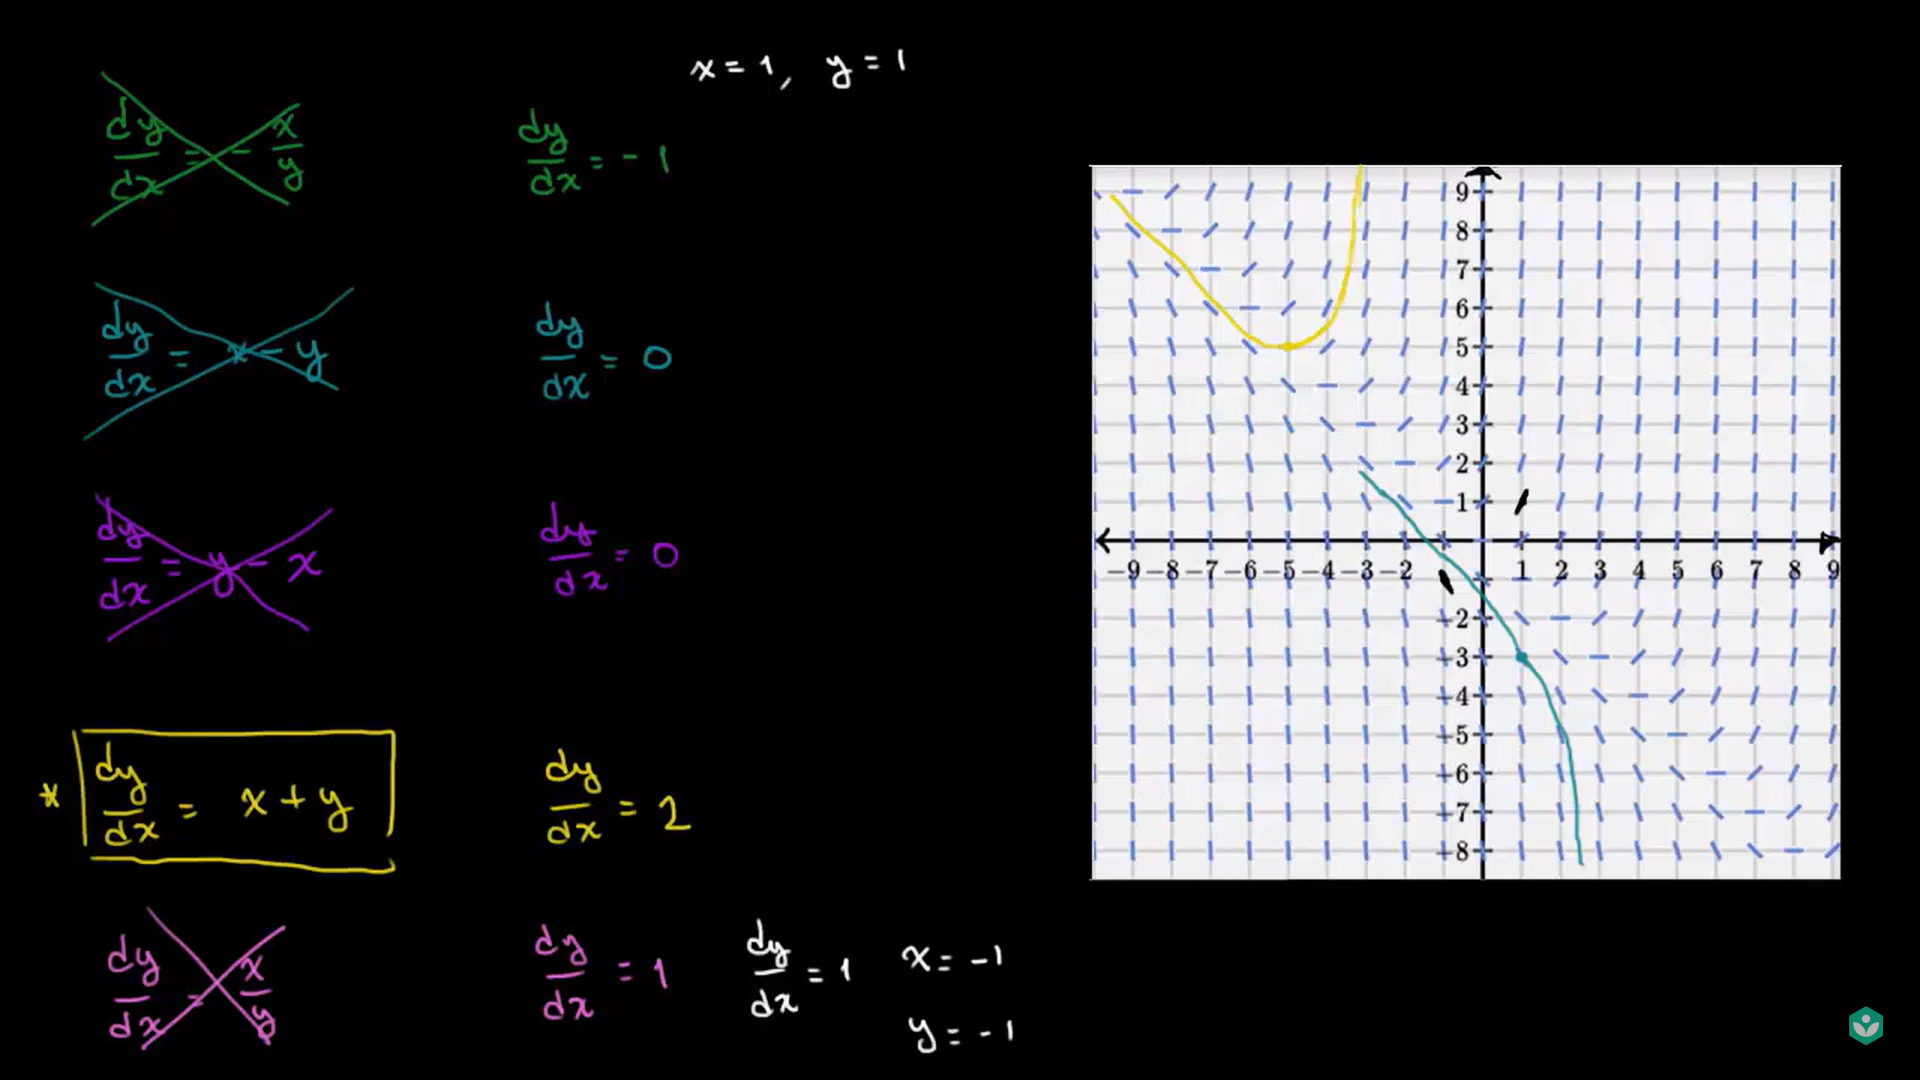 x = 1, y = 1
dy/dx = - x/y
dy/dx = - 1
dy/dx = x - y
dy/dx = 0
dy/dx = y - x
dy/dx = 0
* dy/dx = x + y
dy/dx = 2
dy/dx = x/y
dy/dx = 1
dy/dx = 1
x = -1
y = -1
9
8
7
6
5
4
3
2
1
-9 -8 -7 -6 -5 -4 -3 -2 1 2 3 4 5 6 7 8 9
-2
-3
-4
-5
-6
-7
-8